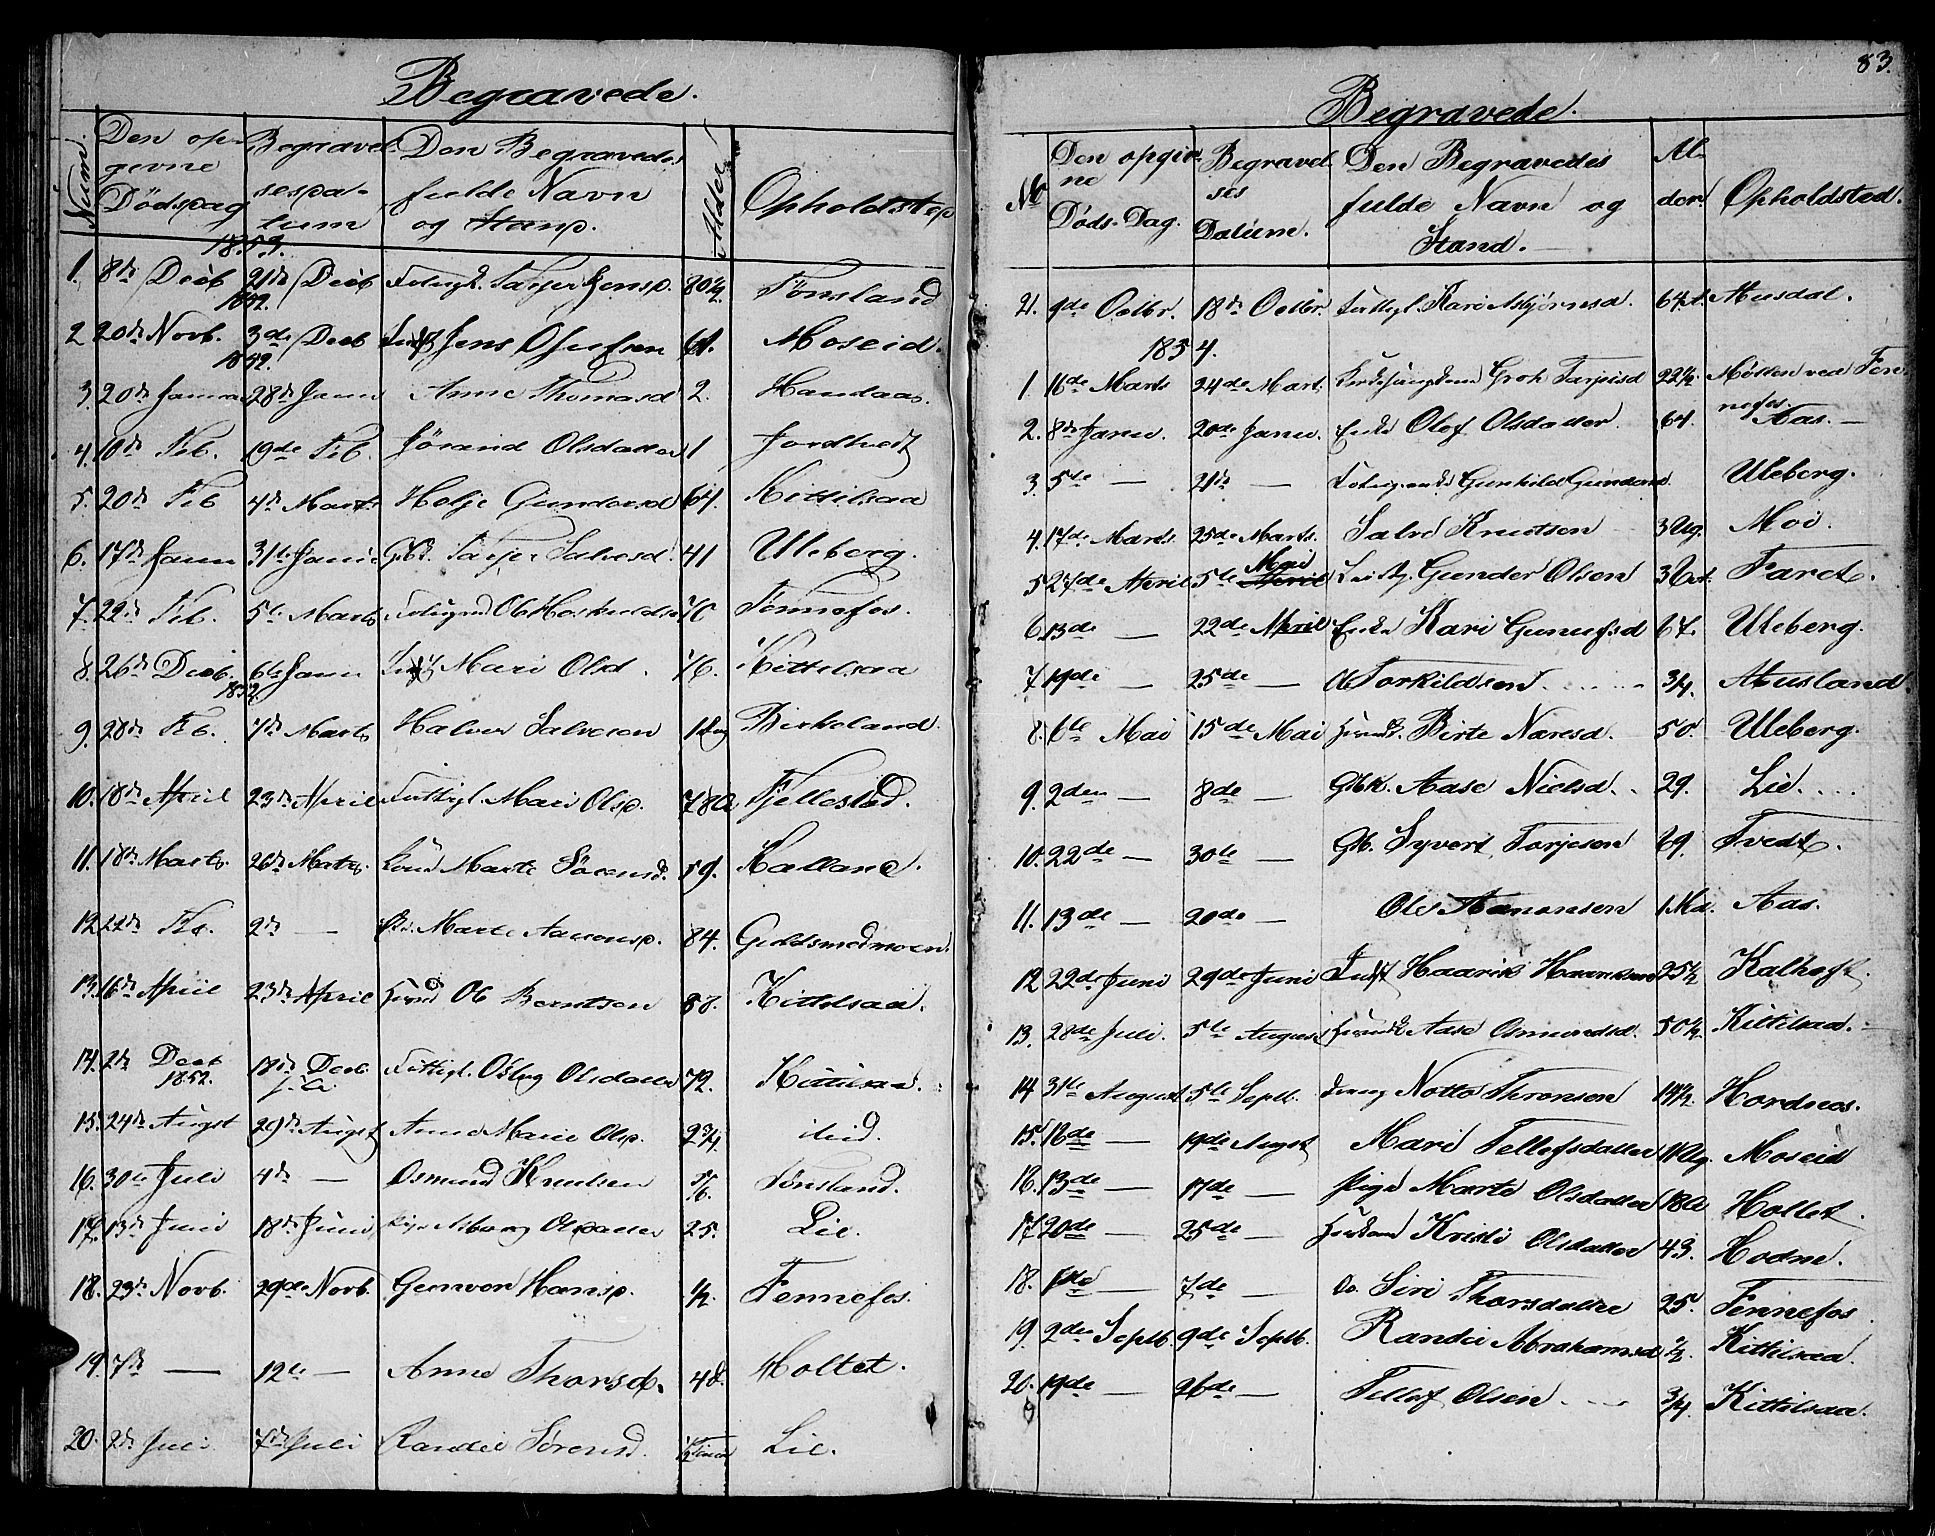 Begravede.
Num Den op-gevne Dödsdag Begravelsesdatum Den Begravedes fulde Navn og Stand. Alder Opholdsted
1853.
1. 8de Decb 21de Decb Jensd. 80½ Tønsland
1852.
2 20de Novb. 3de Decb Jens Olufsen Moseid.
1852.
3. 20de Januar 28de Janu Anne Thomasd 2. Handaas.
4. 10de Feb. 19de Feb. Jørand Olsdatter 1 Jordtvedt
5. 20de Feb 4de Marts Holje Gundersd 64. Kittilsaa
6. 17de Janu 31te Janu Gbd. Salvesd. 41 Uleberg.
7. 22de Feb. 5te Marts Ole Høskuldsen 70 Fennefos.
8. 26de Decb. 6te Janu Mari Olsd. 76. Kittelsaa
1852.
9. 28de Feb. 7de Marts Halvor Salvesen Birkeland.
10. 18de April 23de April Fattigl. Mari Olsd. 78 Fjellestad.
11. 18de Marts 26de Marts Marte Sørensd. 59. Kalland.
12. 22de Feb. 2de — Marte Aanensd. 84. Guldsmedmoen.
13. 16de April 23de April Ole Berntsen Kittelsaa.
14. 2de Decb 1852. 18de Decb Fattigl. Olsdatter 72. Kittilsaa.
15. 24de Augst 29de Augst Anne Marie Olsd. 2¾
16. 30te Juli 4de — Osmund Knudsen 5/6. Tønsland.
17. 13de Juni 18de Juni Pige Olsdatter 25. Lie.
18. 23de Novb. 29de Novb. Gunvor Hansd. ½ Fennefos.
19. 7de — 12te — Anne Thorsd. 48. Holtet.
20. 2de Juli 7de Juli Randei Sørensd. ½ Time Lie.
83.
Begravede.
No Den opgivne Døds-Dag. Begravelses Datum. Den Begravedes fulde Navn og Stand. — Alder. Opholdsted.
21. 9de Octbr. 18de Octbr. Fattigl. Kari Asbjørnsd. Musdal.
1854.
1. 16de Marts 24de Mart. Groh Tarjeisd 22½. Moen ved Fennefos.
2. 8de Janu. 20de Janu. Enke Olof Olsdatter. 64. Aas. —
3. 5te — 21de — Gunhild Gundersd. Uleberg.
4. 17de Marts. 25de Marts. Salve Knudsen 3 Ug. Moi.
5 27de April 5te Mai Gunder Olsen Faret.
6. 13de — 22de April Enke Kari Gunulfsd 67. Uleberg.
7. 19de — 25de — Ole Torkildsen ¾. Ausland.
8. 6te Mai 15de Mai Birte Næresd. 50. Uleberg.
9. 2den — 8de — Gbk. Aase Nielsd. 29. Lie.
10. 22de — 30te — Gb. Syvert Torjesen 69. Tvedt.
11. 13de — 20de — Ole Aanonsen 1 Md. Aas.
12 22de Juni 29de Juni Haavik Haaviksen 25½ Kalhoft.
13. 28de Juli. 5te August Aase Osmundsd. 50½. Kittilsaa.
14 31te August 5te Septb. Dreng Notto Thronsen 14½. Hordnes.
15. 12de — 19de Augst Mari Tellefsdatter 11 Ug. Moseid
16. 13de — 17de — Pige Marte Olsdatter 18 Holtet.
17 20de — 25de — Kristi Olsdatter 43. Hodne.
18. — 7de — Do. Siri Thorsdatter 25. Fennefos
19. 2den Septb. 9de Septb. Randei Abrahamsd ½. Kittilsaa.
20. 19de — 26de — Tellef Olsen ¾. Kittelsaa.